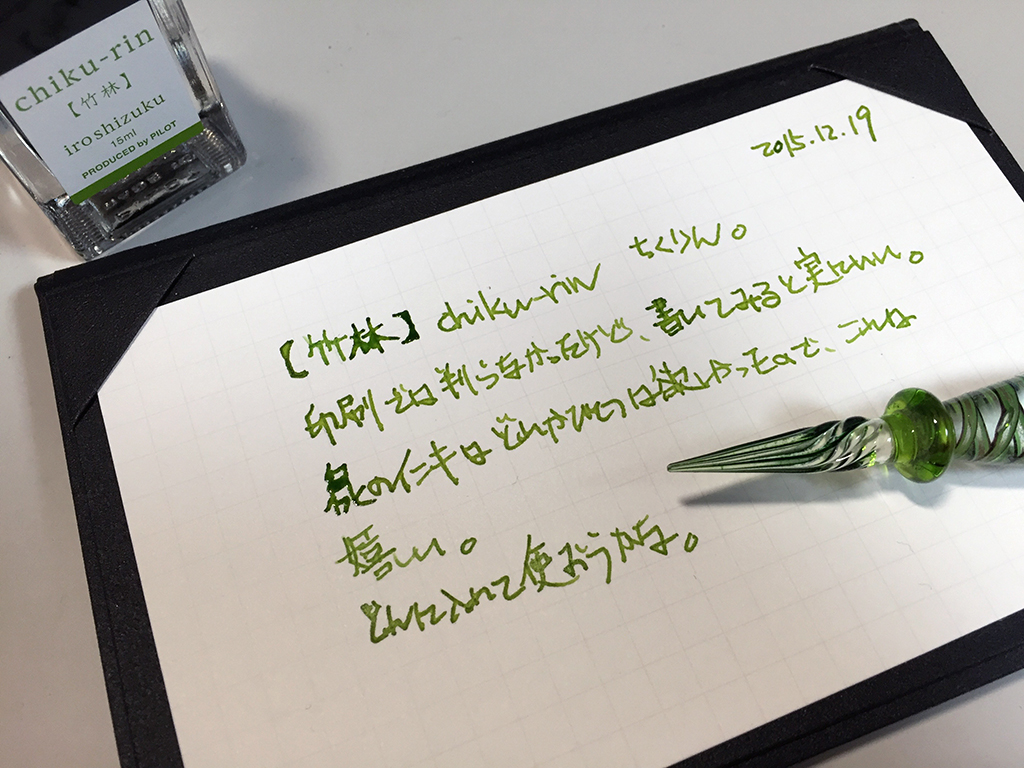 chiku-rin
【竹林】
iroshizuku
15ml
PRODUCED by PILOT
2015.12.19
【竹林】 chiku-rin ちくりん。
印刷では判らなかったけど、書いてみると実にいい。
のインキは ひとつは欲しかったので、これは
嬉しい。
どれに入れて使おうかな。